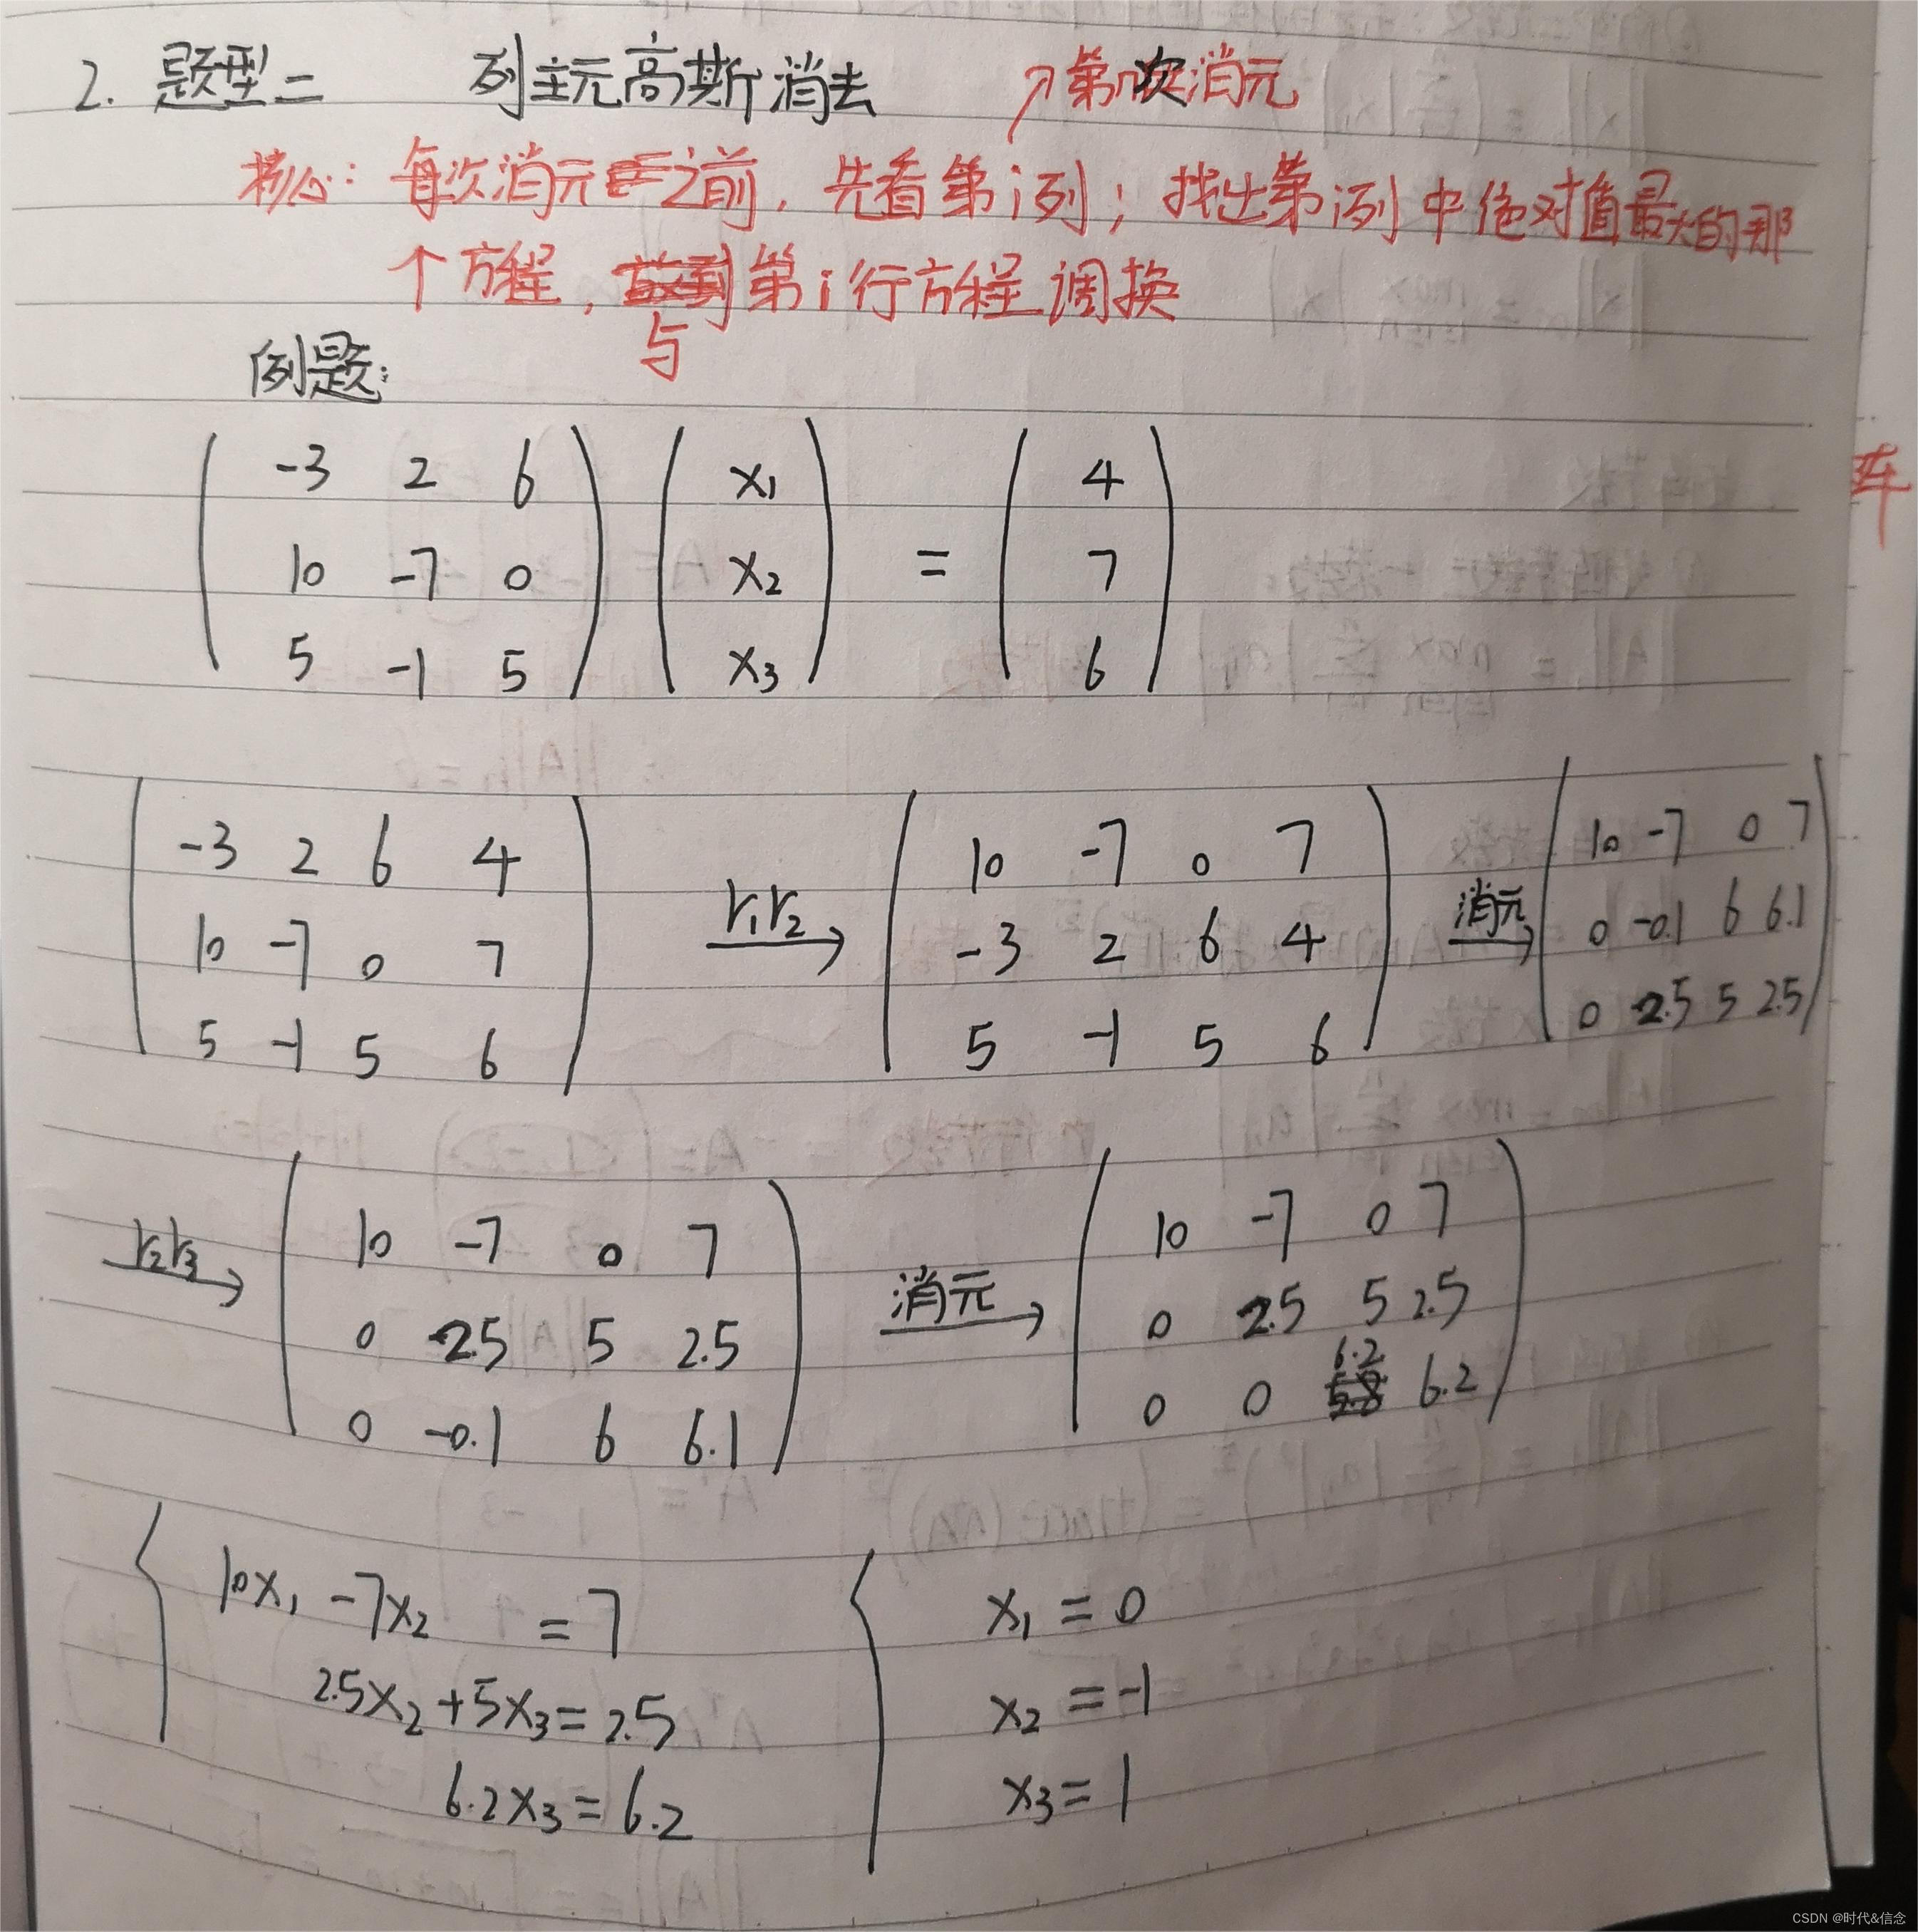 2. 题型二 列主元高斯消去 ↗第i次消元
核心：每次消元之前，先看第i列；找出第i列中绝对值最大的那
个方程，与第i行方程调换
例题：
-3 2 6 x₁ 4
10 -7 0 x₂ = 7
5 -1 5 x₃ 6
-3 2 6 4
10 -7 0 7
5 -1 5 6
r₁r₂→
10 -7 0 7
-3 2 6 4
5 -1 5 6
消元→
10 -7 0 7
0 -0.1 6 6.1
0 2.5 5 2.5
r₂r₃→
10 -7 0 7
0 2.5 5 2.5
0 -0.1 6 6.1
消元→
10 -7 0 7
0 2.5 5 2.5
0 0 6.2 6.2
10x₁ -7x₂ = 7
2.5x₂ +5x₃ = 2.5
6.2x₃ = 6.2
x₁ = 0
x₂ = -1
x₃ = 1
CSDN @时代&信念